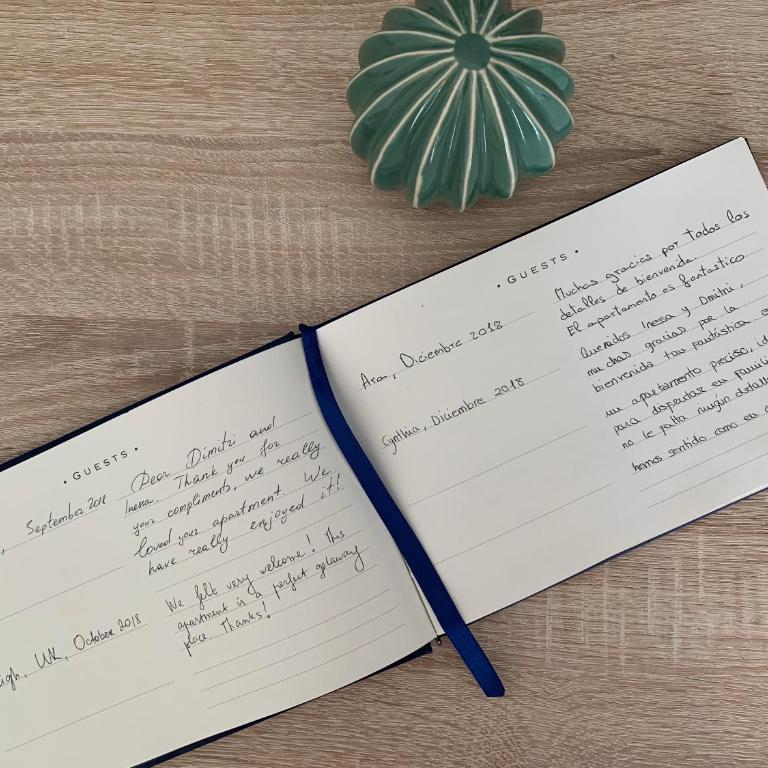 • GUESTS •
September 2018
Dear Dimitri and
Inessa. Thank you for
your compliments, we really
loved your apartment. We
have really enjoyed it!
UK, October 2018
We felt very welcome! This
apartment is a perfect getaway
place. Thanks!
• GUESTS •
Diciembre 2018
Muchas gracias por todos los
detalles de bienvenida.
El apartamento es fantastico
Cynthia, Diciembre 2018
Queridos Inessa y Dmitri,
muchas gracias por la
bienvenida tan fantástica.
un apartamento preciso,
para disfrutar en
no le falta ningún
hemos sentido como en